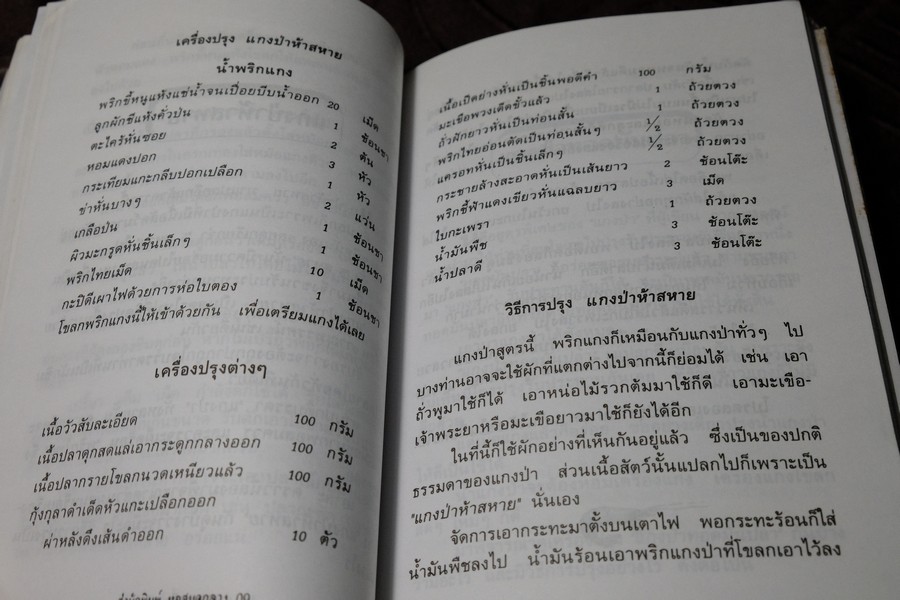 เครื่องปรุง แกงป่าห้าสหาย
น้ำพริกแกง
พริกขี้หนูแห้งแช่น้ำจนเปื่อยบีบน้ำออก 20 เม็ด
ลูกผักชีแห้งคั่วป่น 1 ช้อนชา
ตะไคร้หั่นซอย 2 ต้น
หอมแดงปอก 3 หัว
กระเทียมแกะกลีบปอกเปลือก 1 หัว
ข่าหั่นบางๆ 2 แว่น
เกลือป่น 1 ช้อนชา
ผิวมะกรูดหั่นชิ้นเล็กๆ 1 ช้อนชา
พริกไทยเม็ด 10 เม็ด
กะปิดีเผาไฟด้วยการห่อใบตอง 1 ช้อนชา
โขลกพริกแกงนี้ให้เข้าด้วยกัน เพื่อเตรียมแกงได้เลย
เครื่องปรุงต่างๆ
เนื้อวัวสับละเอียด 100 กรัม
เนื้อปลาดุกสดแล่เอากระดูกกลางออก 100 กรัม
เนื้อปลากรายโขลกนวดเหนียวแล้ว 100 กรัม
กุ้งกุลาดำเด็ดหัวแกะเปลือกออก
ผ่าหลังดึงเส้นดำออก 10 ตัว
เนื้อเป็ดย่างหั่นเป็นชิ้นพอดีคำ 100 กรัม
มะเขือพวงเด็ดขั้วแล้ว 1 ถ้วยตวง
ถั่วฝักยาวหั่นเป็นท่อนสั้น 1 ถ้วยตวง
พริกไทยอ่อนตัดเป็นท่อนสั้นๆ 1/2 ถ้วยตวง
แครอทหั่นเป็นชิ้นเล็กๆ 1/2 ถ้วยตวง
กระชายล้างสะอาดหั่นเป็นเส้นยาว 2 ช้อนโต๊ะ
พริกชี้ฟ้าแดงเขียวหั่นแฉลบยาว 3 เม็ด
ใบกะเพรา 1 ถ้วยตวง
น้ำมันพืช 3 ช้อนโต๊ะ
น้ำปลาดี 3 ช้อนโต๊ะ
วิธีการปรุง แกงป่าห้าสหาย
แกงป่าสูตรนี้ พริกแกงก็เหมือนกับแกงป่าทั่วๆ ไป
บางท่านอาจจะใช้ผักที่แตกต่างไปจากนี้ก็ย่อมได้ เช่น เอา
ถั่วพูมาใช้ก็ได้ เอาหน่อไม้รวกต้มมาใช้ก็ดี เอามะเขือ-
เจ้าพระยาหรือมะเขือยาวมาใช้ก็ยังได้อีก
ในที่นี้ก็ใช้ผักอย่างที่เห็นกันอยู่แล้ว ซึ่งเป็นของปกติ
ธรรมดาของแกงป่า ส่วนเนื้อสัตว์นั้นแปลกไปก็เพราะเป็น
"แกงป่าห้าสหาย" นั่นเอง
จัดการเอากระทะมาตั้งบนเตาไฟ พอกระทะร้อนก็ใส่
น้ำมันพืชลงไป น้ำมันร้อนเอาพริกแกงป่าที่โขลกเอาไว้ลง